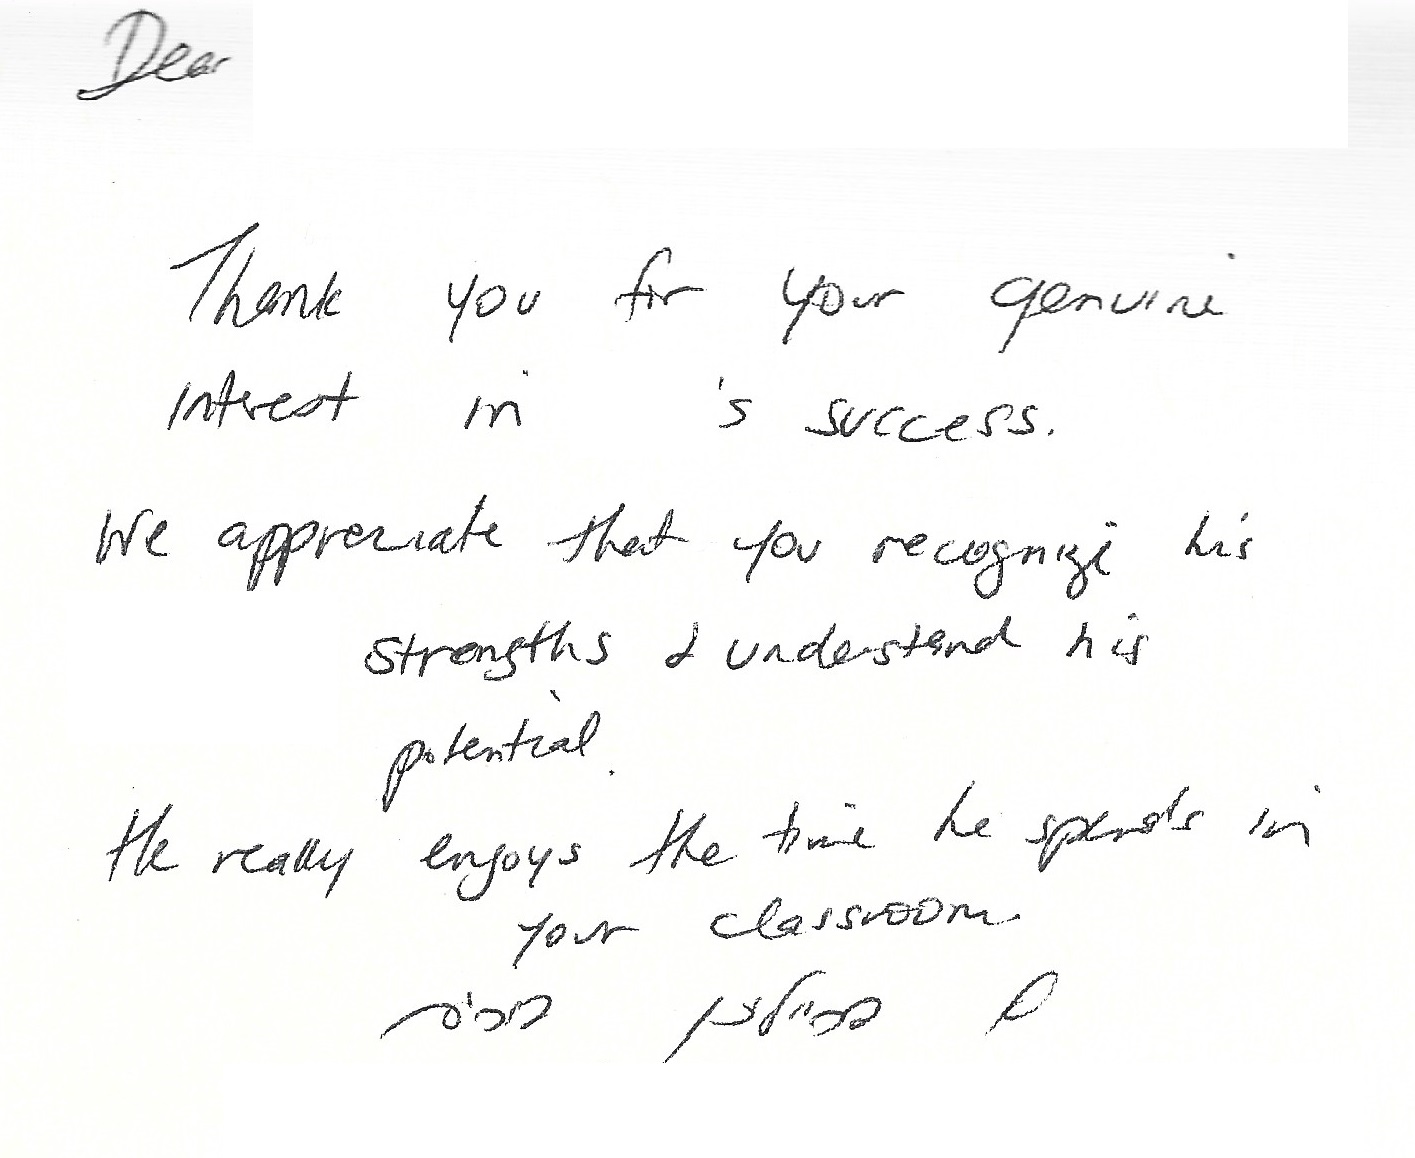 Dear
Thank you for your genuine
interest in 's success.
We appreciate that you recognize his
strengths & understand his
potential.
He really enjoys the time he spends in
your classroom.